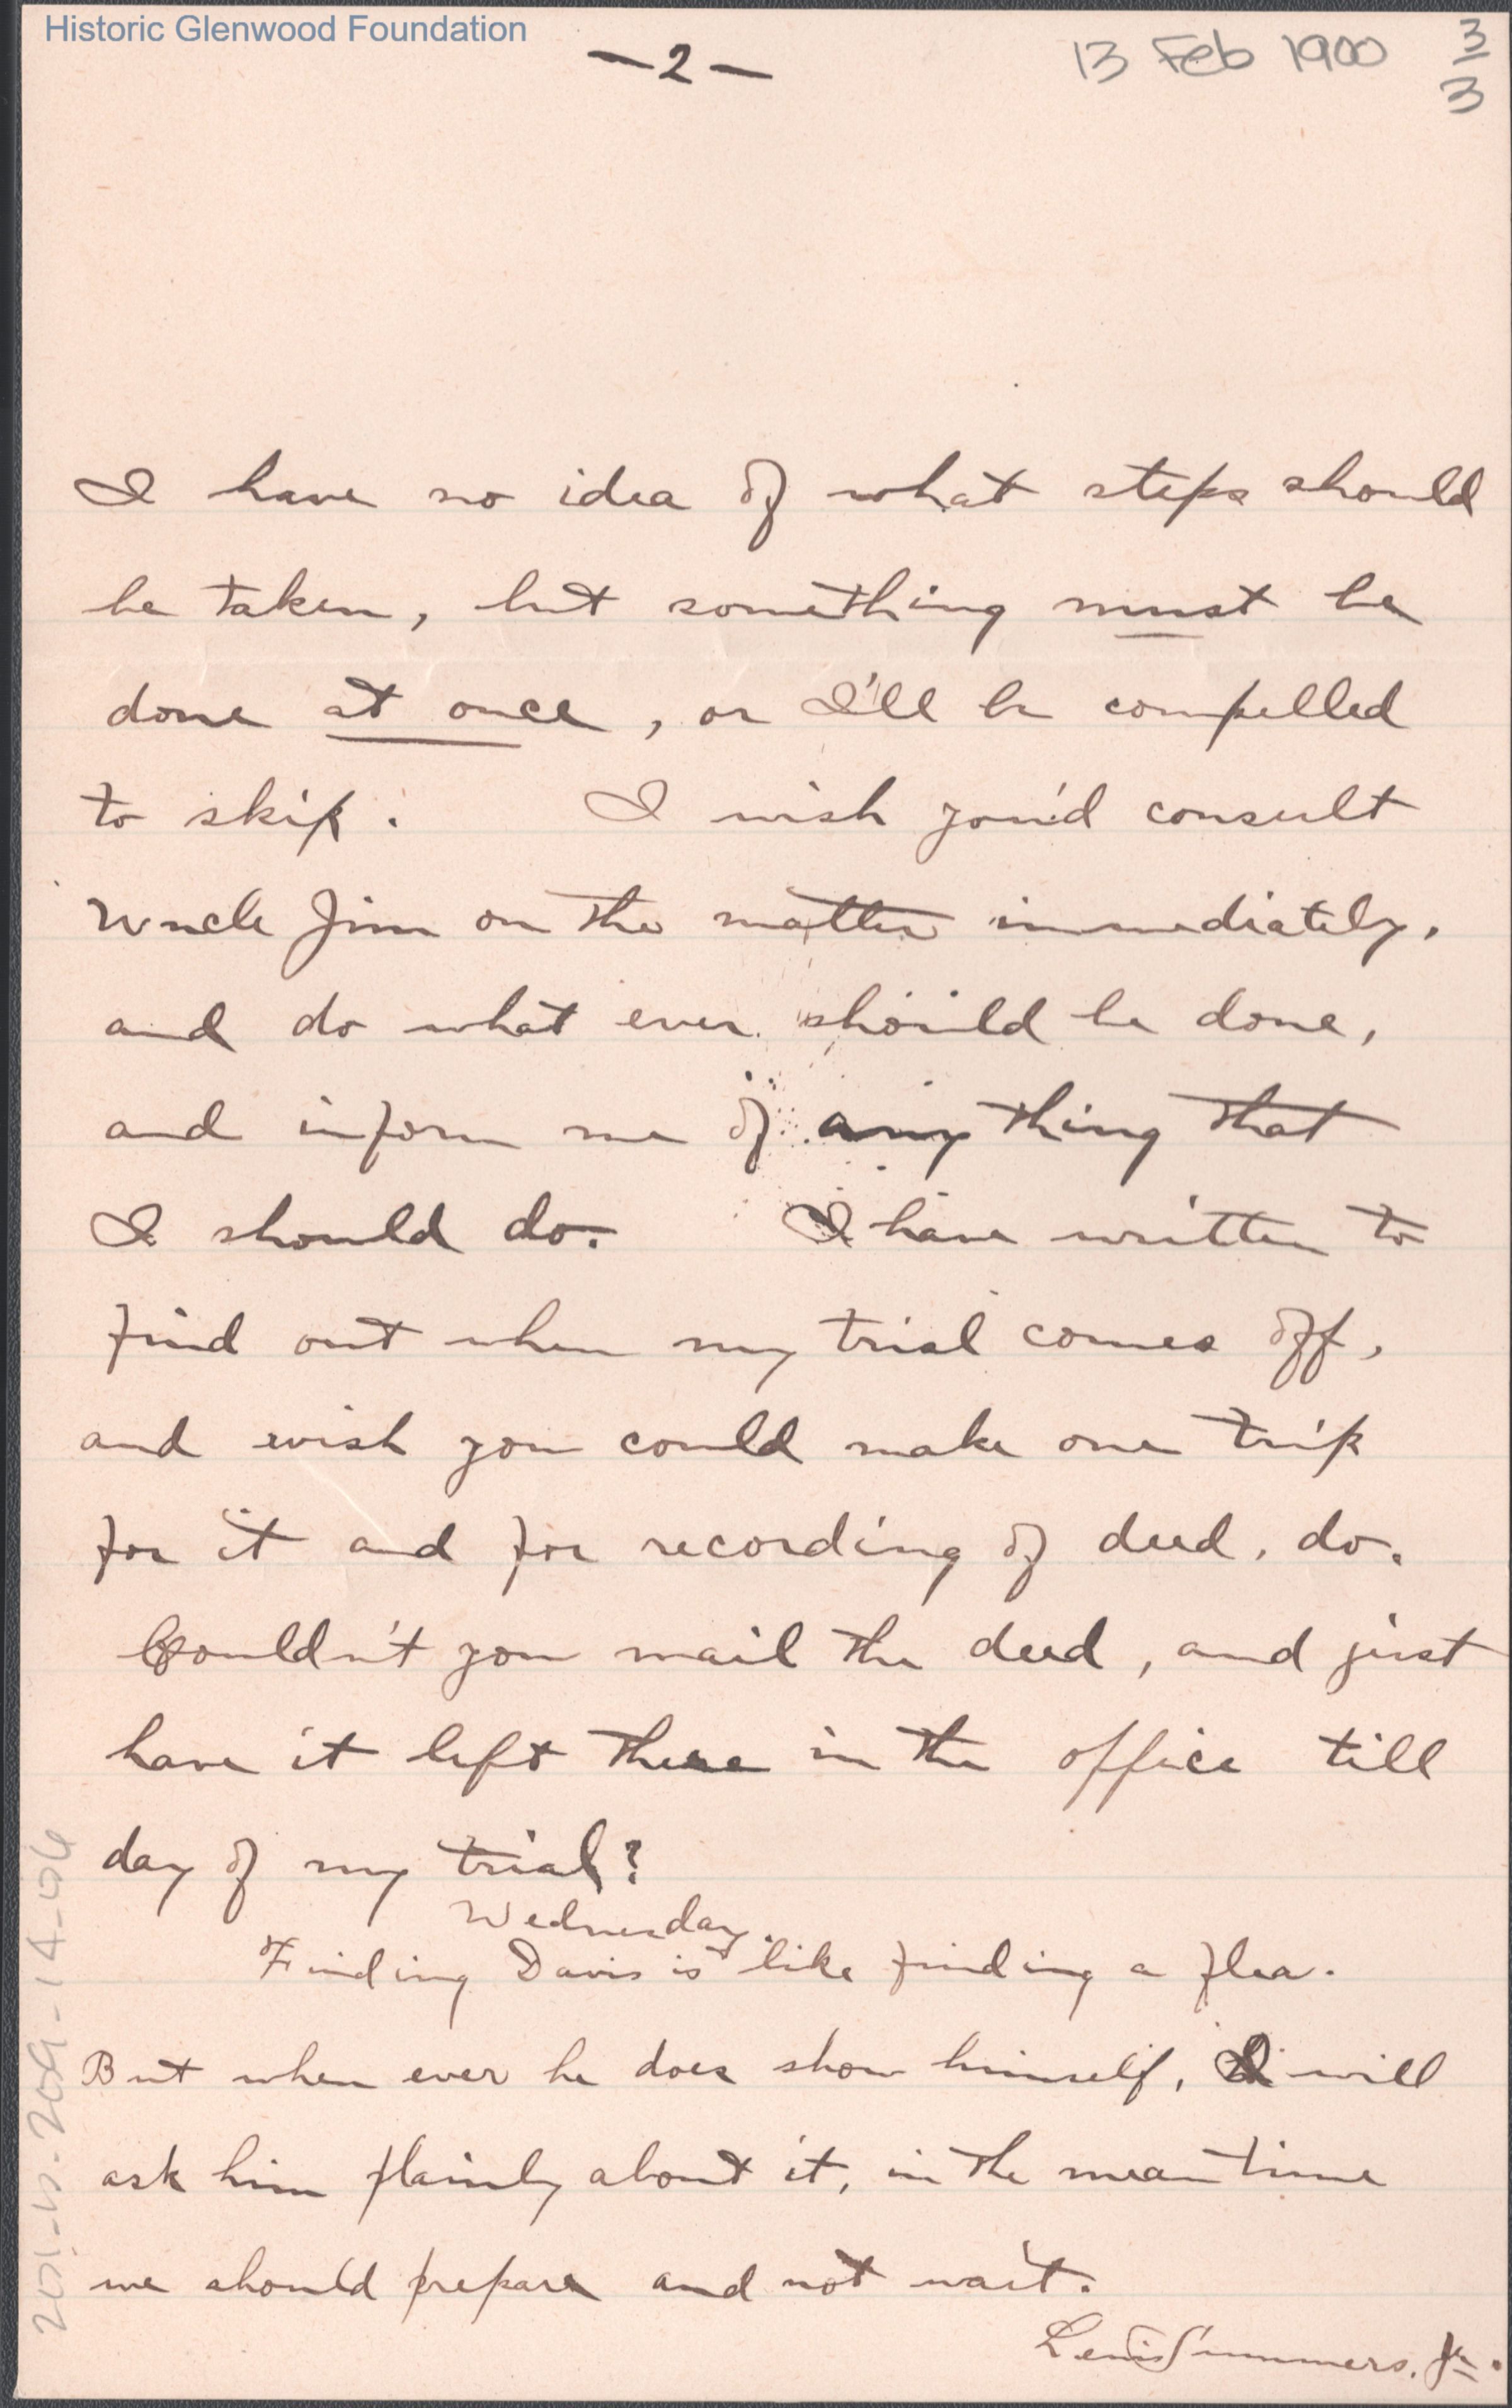 Historic Glenwood Foundation
—2—
13 Feb 1900
3
3
I have no idea of what steps should
be taken, but something must be
done at once, or I'll be compelled
to skip. I wish you'd consult
Uncle Jim on the matter immediately,
and do what ever should be done,
and inform me of anything that
I should do. I have written to
find out when my trial comes off,
and wish you could make one trip
for it and for recording of deed, do.
Couldn't you mail the deed, and just
have it left there in the office till
day of my trial?
Wednesday.
Finding Davis is like finding a flea.
But when ever he does show himself, I will
ask him plainly about it, in the mean time
we should prepare and not wait.
Lewis Summers. Jr.